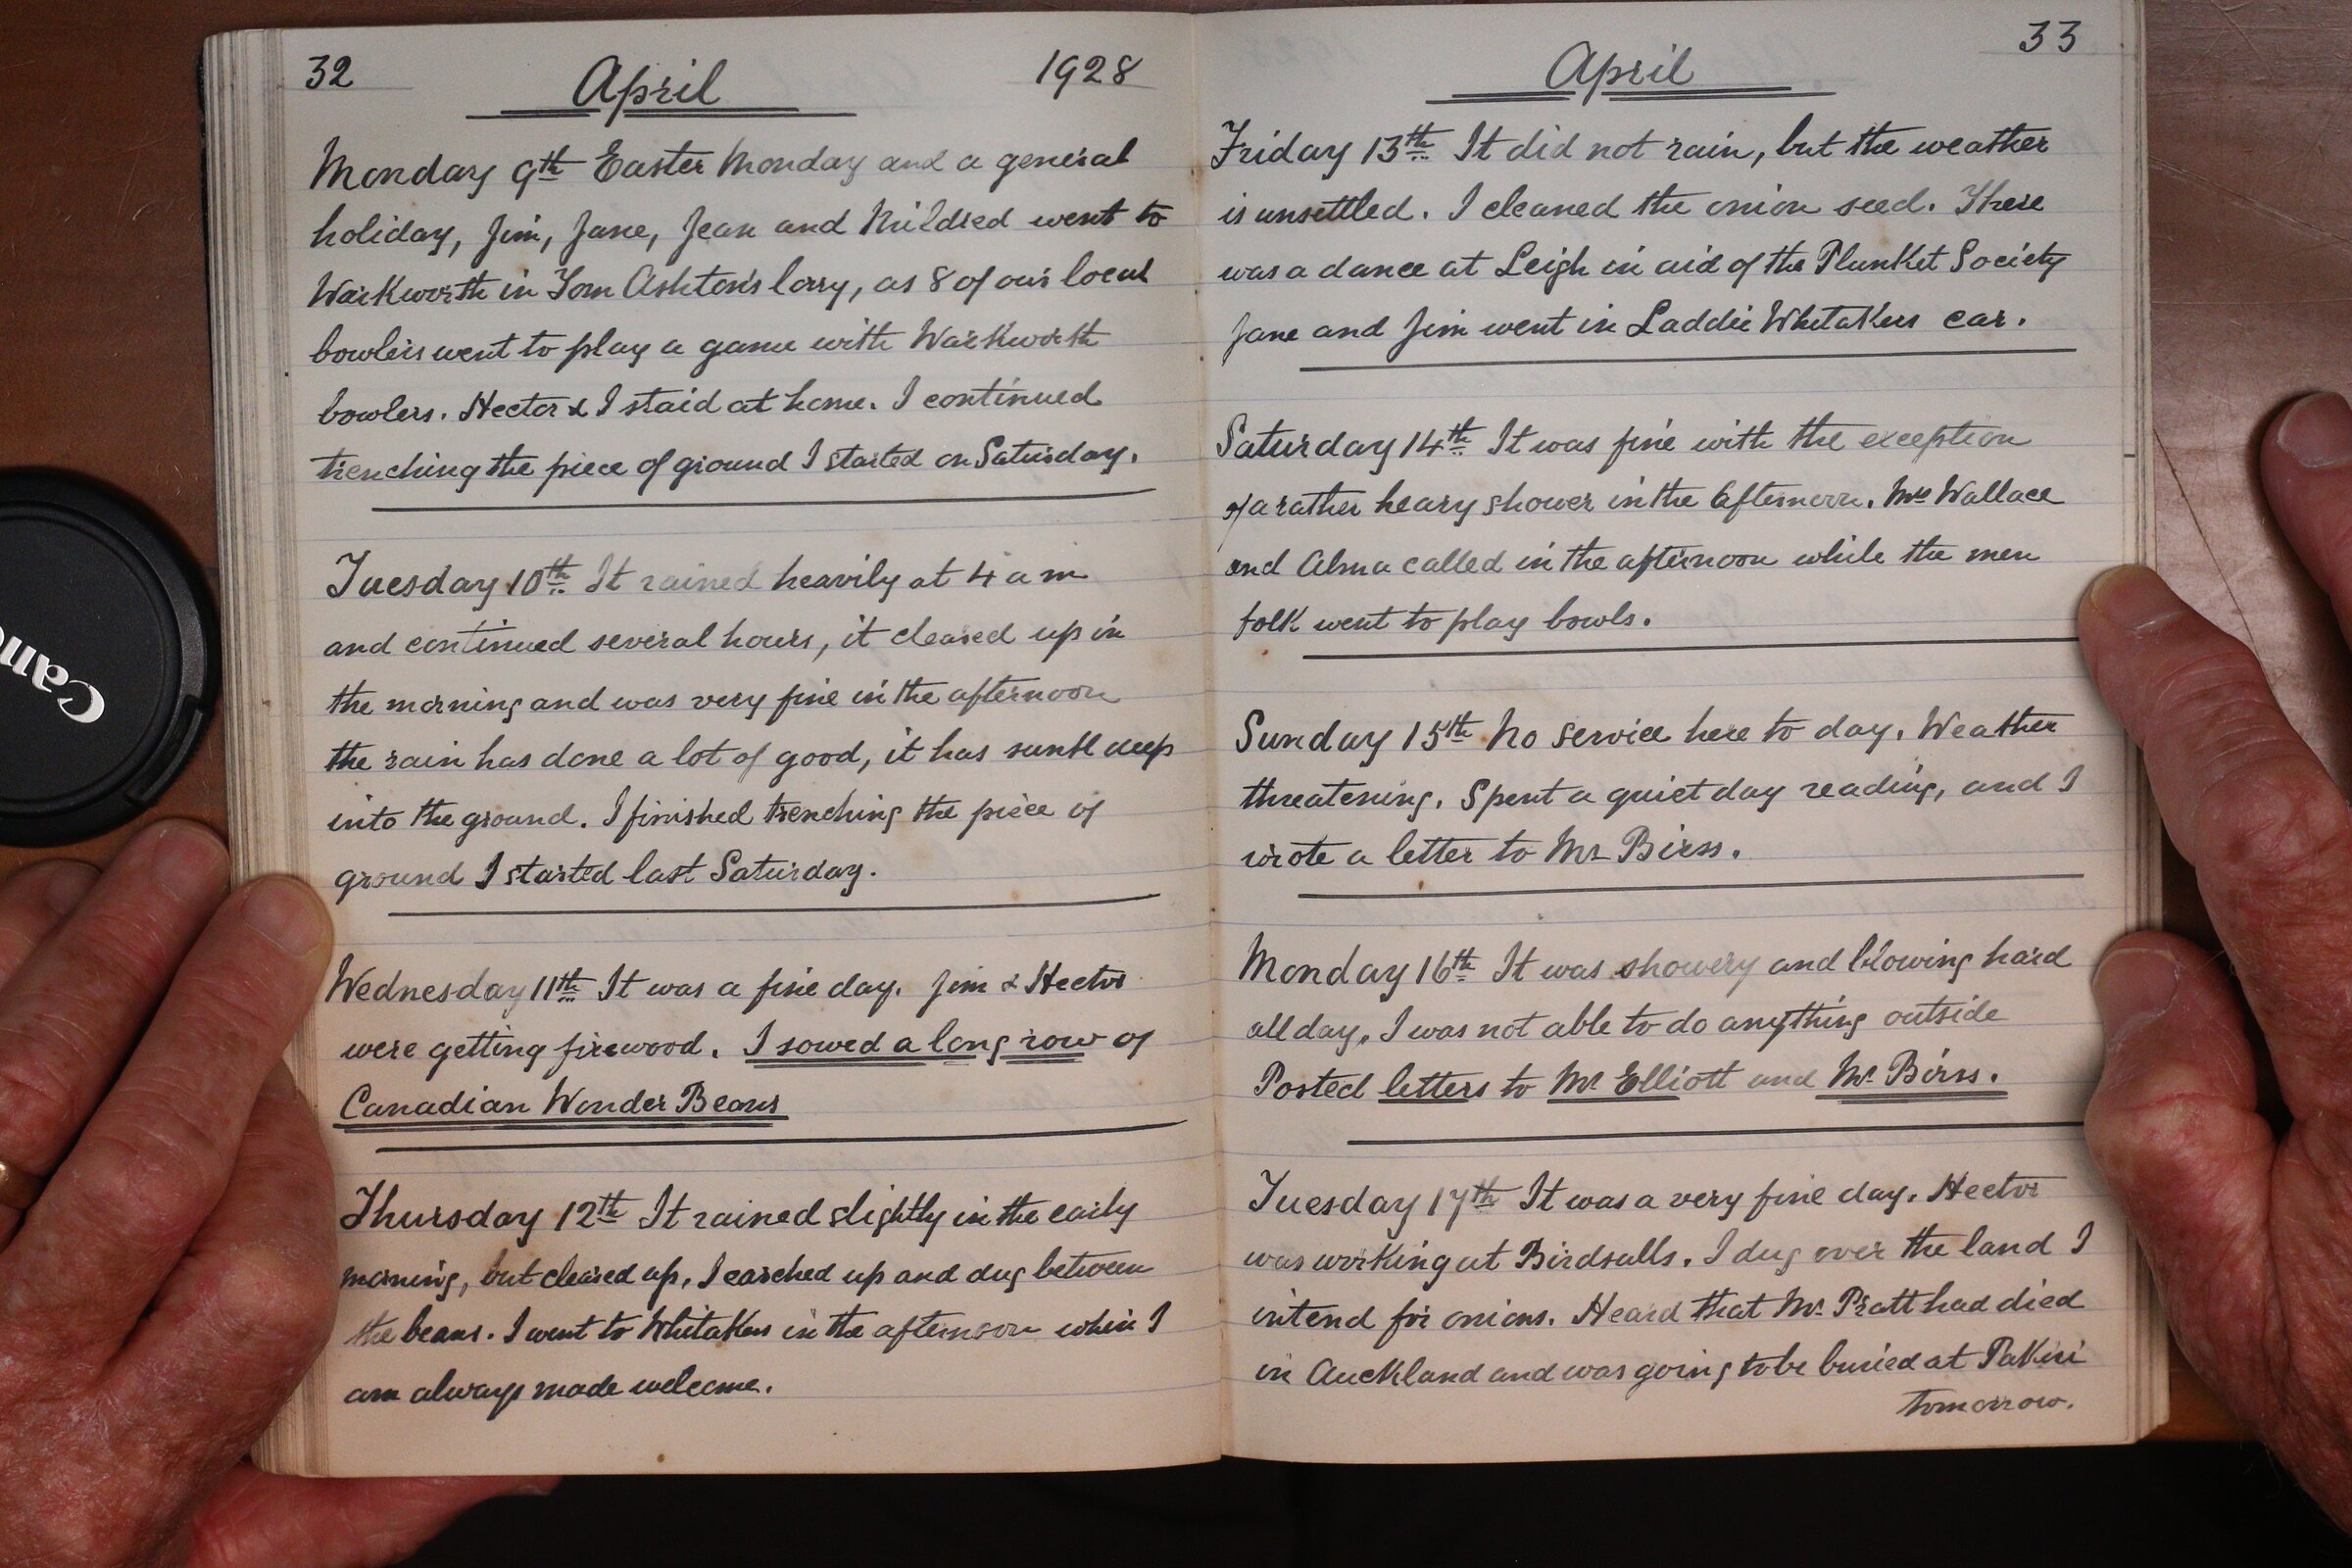 32 April 1928
Monday 9th Easter Monday and a general
holiday, Jim, Jane, Jean and Mildred went to
Warkworth in Tom Ashton's lorry, as 8 of our local
bowlers went to play a game with Warkworth
bowlers. Hector & I staid at home. I continued
trenching the piece of ground I started on Saturday.
Tuesday 10th It rained heavily at 4 am
and continued several hours, it cleared up in
the morning and was very fine in the afternoon
the rain has done a lot of good, it has sunk deep
into the ground. I finished trenching the piece of
ground I started last Saturday.
Wednesday 11th It was a fine day. Jim & Hector
were getting firewood. I sowed a long row of
Canadian Wonder Beans
Thursday 12th It rained slightly in the early
morning, but cleared up, I earthed up and dug between
the beans. I went to Whitakers in the afternoon when I
am always made welcome.
April 33
Friday 13th It did not rain, but the weather
is unsettled. I cleaned the onion seed. There
was a dance at Leigh in aid of the Plunket Society
Jane and Jim went in Laddie Whitakers car.
Saturday 14th It was fine with the exception
of a rather heavy shower in the afternoon. Mrs Wallace
and Alma called in the afternoon while the men
folk went to play bowls.
Sunday 15th No service here to day. Weather
threatening. Spent a quiet day reading, and I
wrote a letter to Mr Birss.
Monday 16th It was showery and blowing hard
all day, I was not able to do anything outside
Posted letters to Mr Elliott and Mr Birss.
Tuesday 17th It was a very fine day. Hector
was working at Birdsalls. I dug over the land I
intend for onions. Heard that Mr Pratt had died
in Auckland and was going to be buried at Pakiri
tomorrow.